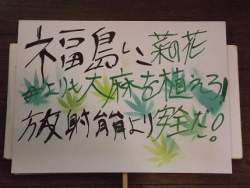 福島に 菜花
よりも大麻を植えろ!
放射能より安全だ!